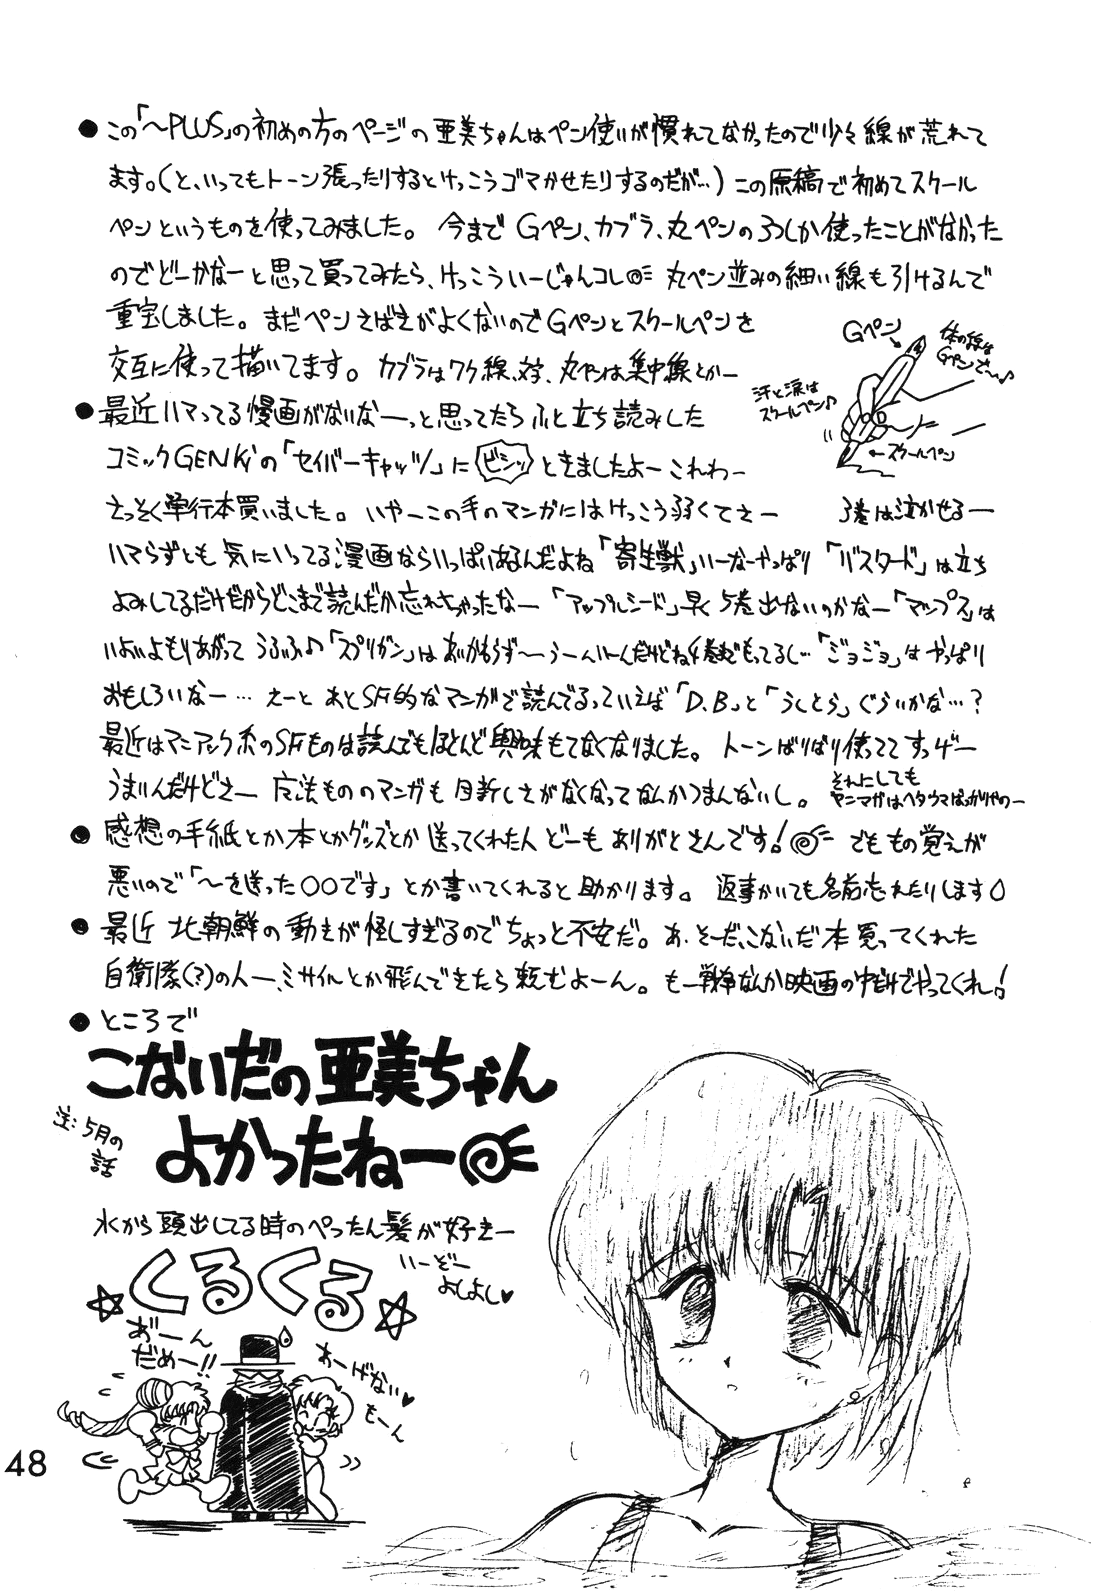 ●この「～PLUS」の初めの方のページの亜美ちゃんはペン使いが慣れてなかったので少々線が荒れて
ます。(と、いってもトーン張ったりするとけっこうゴマかせたりするのだが…)この原稿で初めてスクール
ペンというものを使ってみました。今までGペン、カブラ、丸ペンの3つしか使ったことがなかった
のでどーかなーと思って買ってみたら、けっこういーじゃんコレ 丸ペン並みの細い線も引けるんで
重宝しました。まだペンさばきがよくないのでGペンとスクールペンを
交互に使って描いてます。カブラはワク線、丸ペンは集中線とかー
Gペン
体の線は
Gペンで～♪
汗と涙は
スクールペン♪
←スクールペン
●最近ハマってる漫画がないなーっと思ってたらふと立ち読みした
コミックGENKiの「セイバーキャッツ」に ビシッ ときましたよーこれわー
さっそく単行本買いました。いやーこの手のマンガにはけっこう弱くてさー 3巻は泣かせるー
ハマらずとも気にいってる漫画ならいっぱいあるんだよね「寄生獣」いーなーやっぱり「バスタード」は立ち
よみしてるだけだからどこまで読んだか忘れちゃったなー「アップルシード」早く5巻出ないのかなー「マップス」は
いよいよもりあがって うふふ♪「スプリガン」はあいかわらず～うーんいーんだけどね4巻までもってるし…「ジョジョ」はやっぱり
おもしろいなー…えーと あとSF的なマンガで読んでるっていえば「D.B」と「うしとら」ぐらいかな…?
最近はマニアック系のSFものは読んでもほとんど興味もてなくなりました。トーンばりばり使ってて すっげー
うまいんだけどさー 魔法もののマンガも目新しさがなくなってなんかつまんないし。
それにしても
ヤニマガはヘタウマばっかりやのー
●感想の手紙とか本とかグッズとか送ってくれた人どーもありがとさんです! でももの覚えが
悪いので「～を送った○○です」とか書いてくれると助かります。返事かいても名前忘れたりします
●最近 北朝鮮の動きが怪しすぎるのでちょっと不安だ。あ、そーだ、こないだ本買ってくれた
自衛隊(?)の人ー、ミサイルとか飛んできたら頼むよーん。もー戦争なんか映画の中だけでやってくれ!
●ところで
こないだの亜美ちゃん
よかったねー
注:5月の
話
水から頭出してる時のぺったん髪が好きー
くるくる
いーぞー
よしよし♥
あ゛ーん
だめー!!
あーげない♥
もーん
48